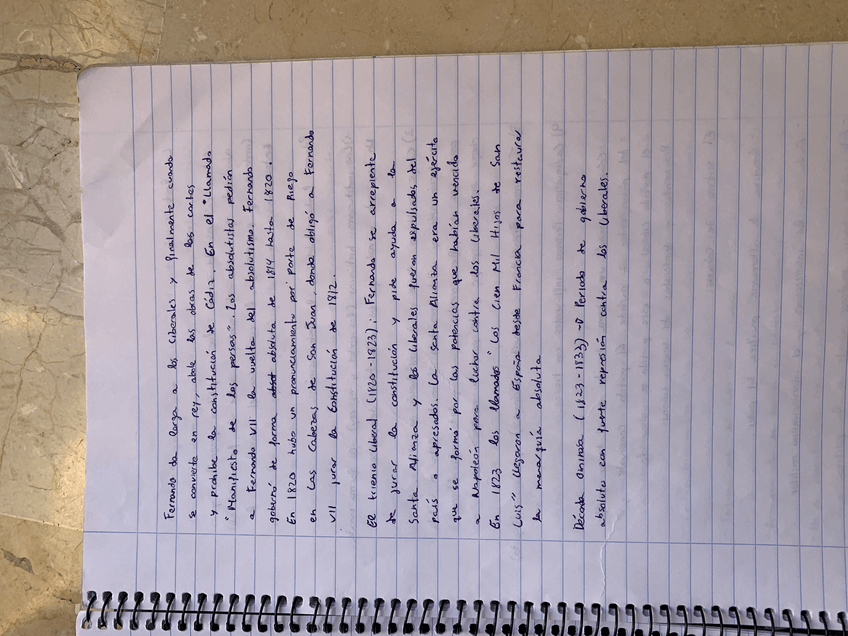 Fernando da larga a los liberales y finalmente cuando
se convierte en rey, abole las obras de las cortes
y prohibe la constitución de Cádiz. En el "Llamado
"Manifiesto de los persas". Los absolutistas pedían
a Fernando VII la vuelta del absolutismo. Fernando
gobernó de forma absoluta de 1814 hasta 1820.
En 1820 hubo un pronunciamiento por parte de Riego
en Las Cabezas de San Juan, donde obligó a Fernando
VII jurar la Constitución de 1812.
El trienio liberal (1820-1823): Fernando se arrepiente
de jurar la constitución y pide ayuda a la
Santa Alianza y los liberales fueron expulsados del
país o apresados. La Santa Alianza era un ejército
que se formó por las potencias que habían vencido
a Napoleón para luchar contra los liberales.
En 1823 los llamados "Los Cien Mil Hijos de San
Luis" llegaron a España desde Francia para restaurar
la monarquía absoluta
Década ominosa (1823-1833) → Periodo de gobierno
absoluto con fuerte represión contra los liberales.